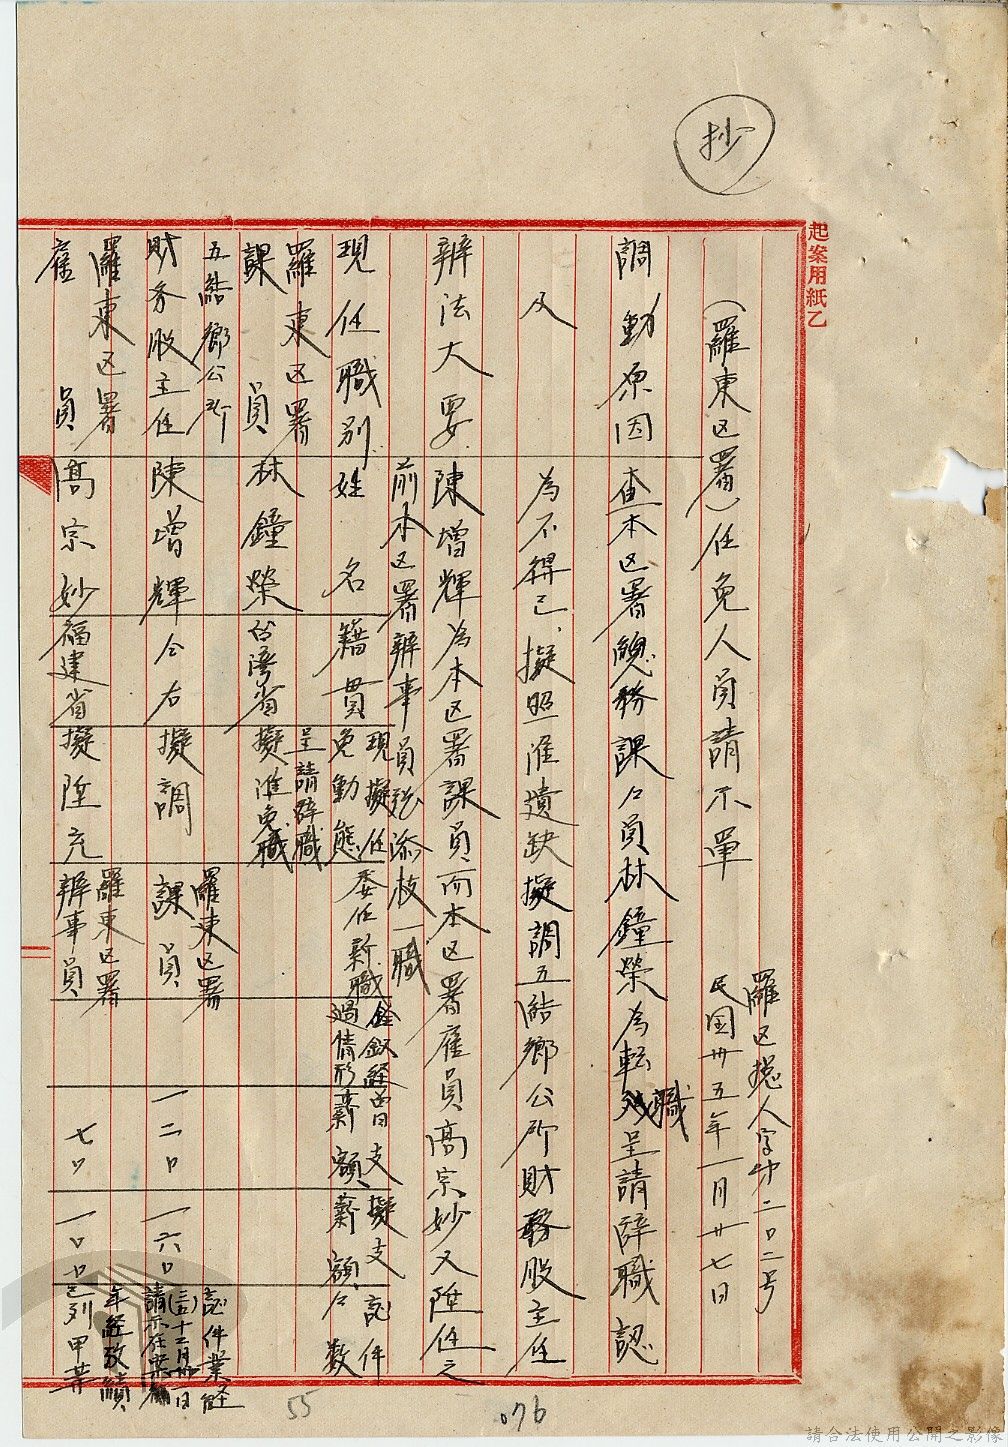 抄
起案用紙乙
羅区總人字第二〇二号
民國卅五年一月廿七日
(羅東区署)任免人員請示單
調動原因 查本区署總務課々員林鐘榮為転職呈請辞職認
及 為不得已，擬照准遺缺擬調五結鄉公所財務股主任
辦法大要 陳增輝為本区署課員而本区署雇員高宗妙又陞任之
前本区署辦事員 添枝一職
現任職別 姓名 籍貫 現擬任免動態 委任新職 銓敘経過情形 曾支薪額 擬支薪額 証件々数
羅東区署課員 林鐘榮 台湾省 呈請辞職擬准免職
五結鄉公所財務股主任 陳增輝 仝右 擬調 羅東区署課員 一二〇 一六〇 証件業経(三五)十二月廿一日請示在案
羅東区署雇員 高宗妙 福建省 擬陞充 羅東区署辦事員 七〇 一〇〇 年經攷績已列甲等
55
076
請合法使用公開之影像